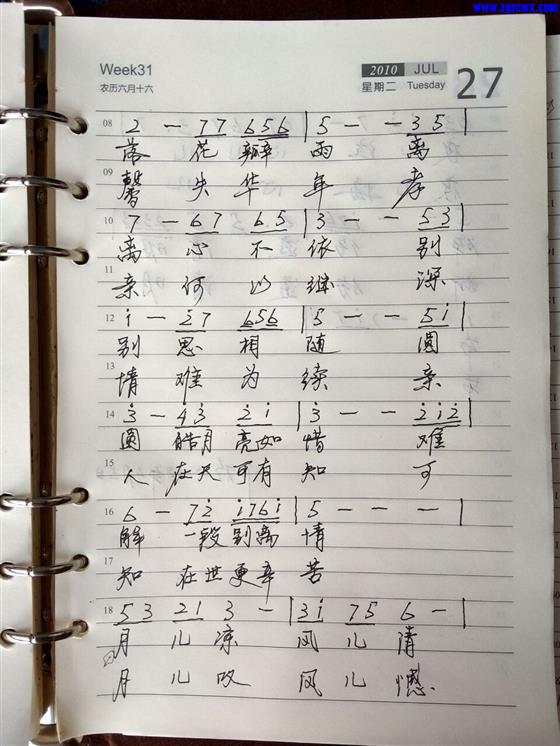 www.zgycwx.com
Week31
农历六月十六
2010 JUL
星期二 Tuesday
27
08 2 — 77 656 | 5 — — 35 |
落 花 瓣 雨 离
09 馨 失 华 年 孝
10 7 — 67 65 | 3 — — 53 |
离 心 不 依 别
11 亲 何 以 继 深
12 i — 27 656 | 5 — — 5i |
别 思 相 随 圆
13 情 难 为 续 亲
14 3 — 43 2i | 3 — — 2i2 |
圆 皓月 亮如 惜 难
15 人 在天 可有 知 可
16 6 — 72 i76i | 5 — — — |
解 一段 别离 情
17 知 在世 更辛 苦
18 53 21 3 — | 3i 75 6 — |
月 儿 凉 风 儿 清
月 儿 叹 风 儿 憾.